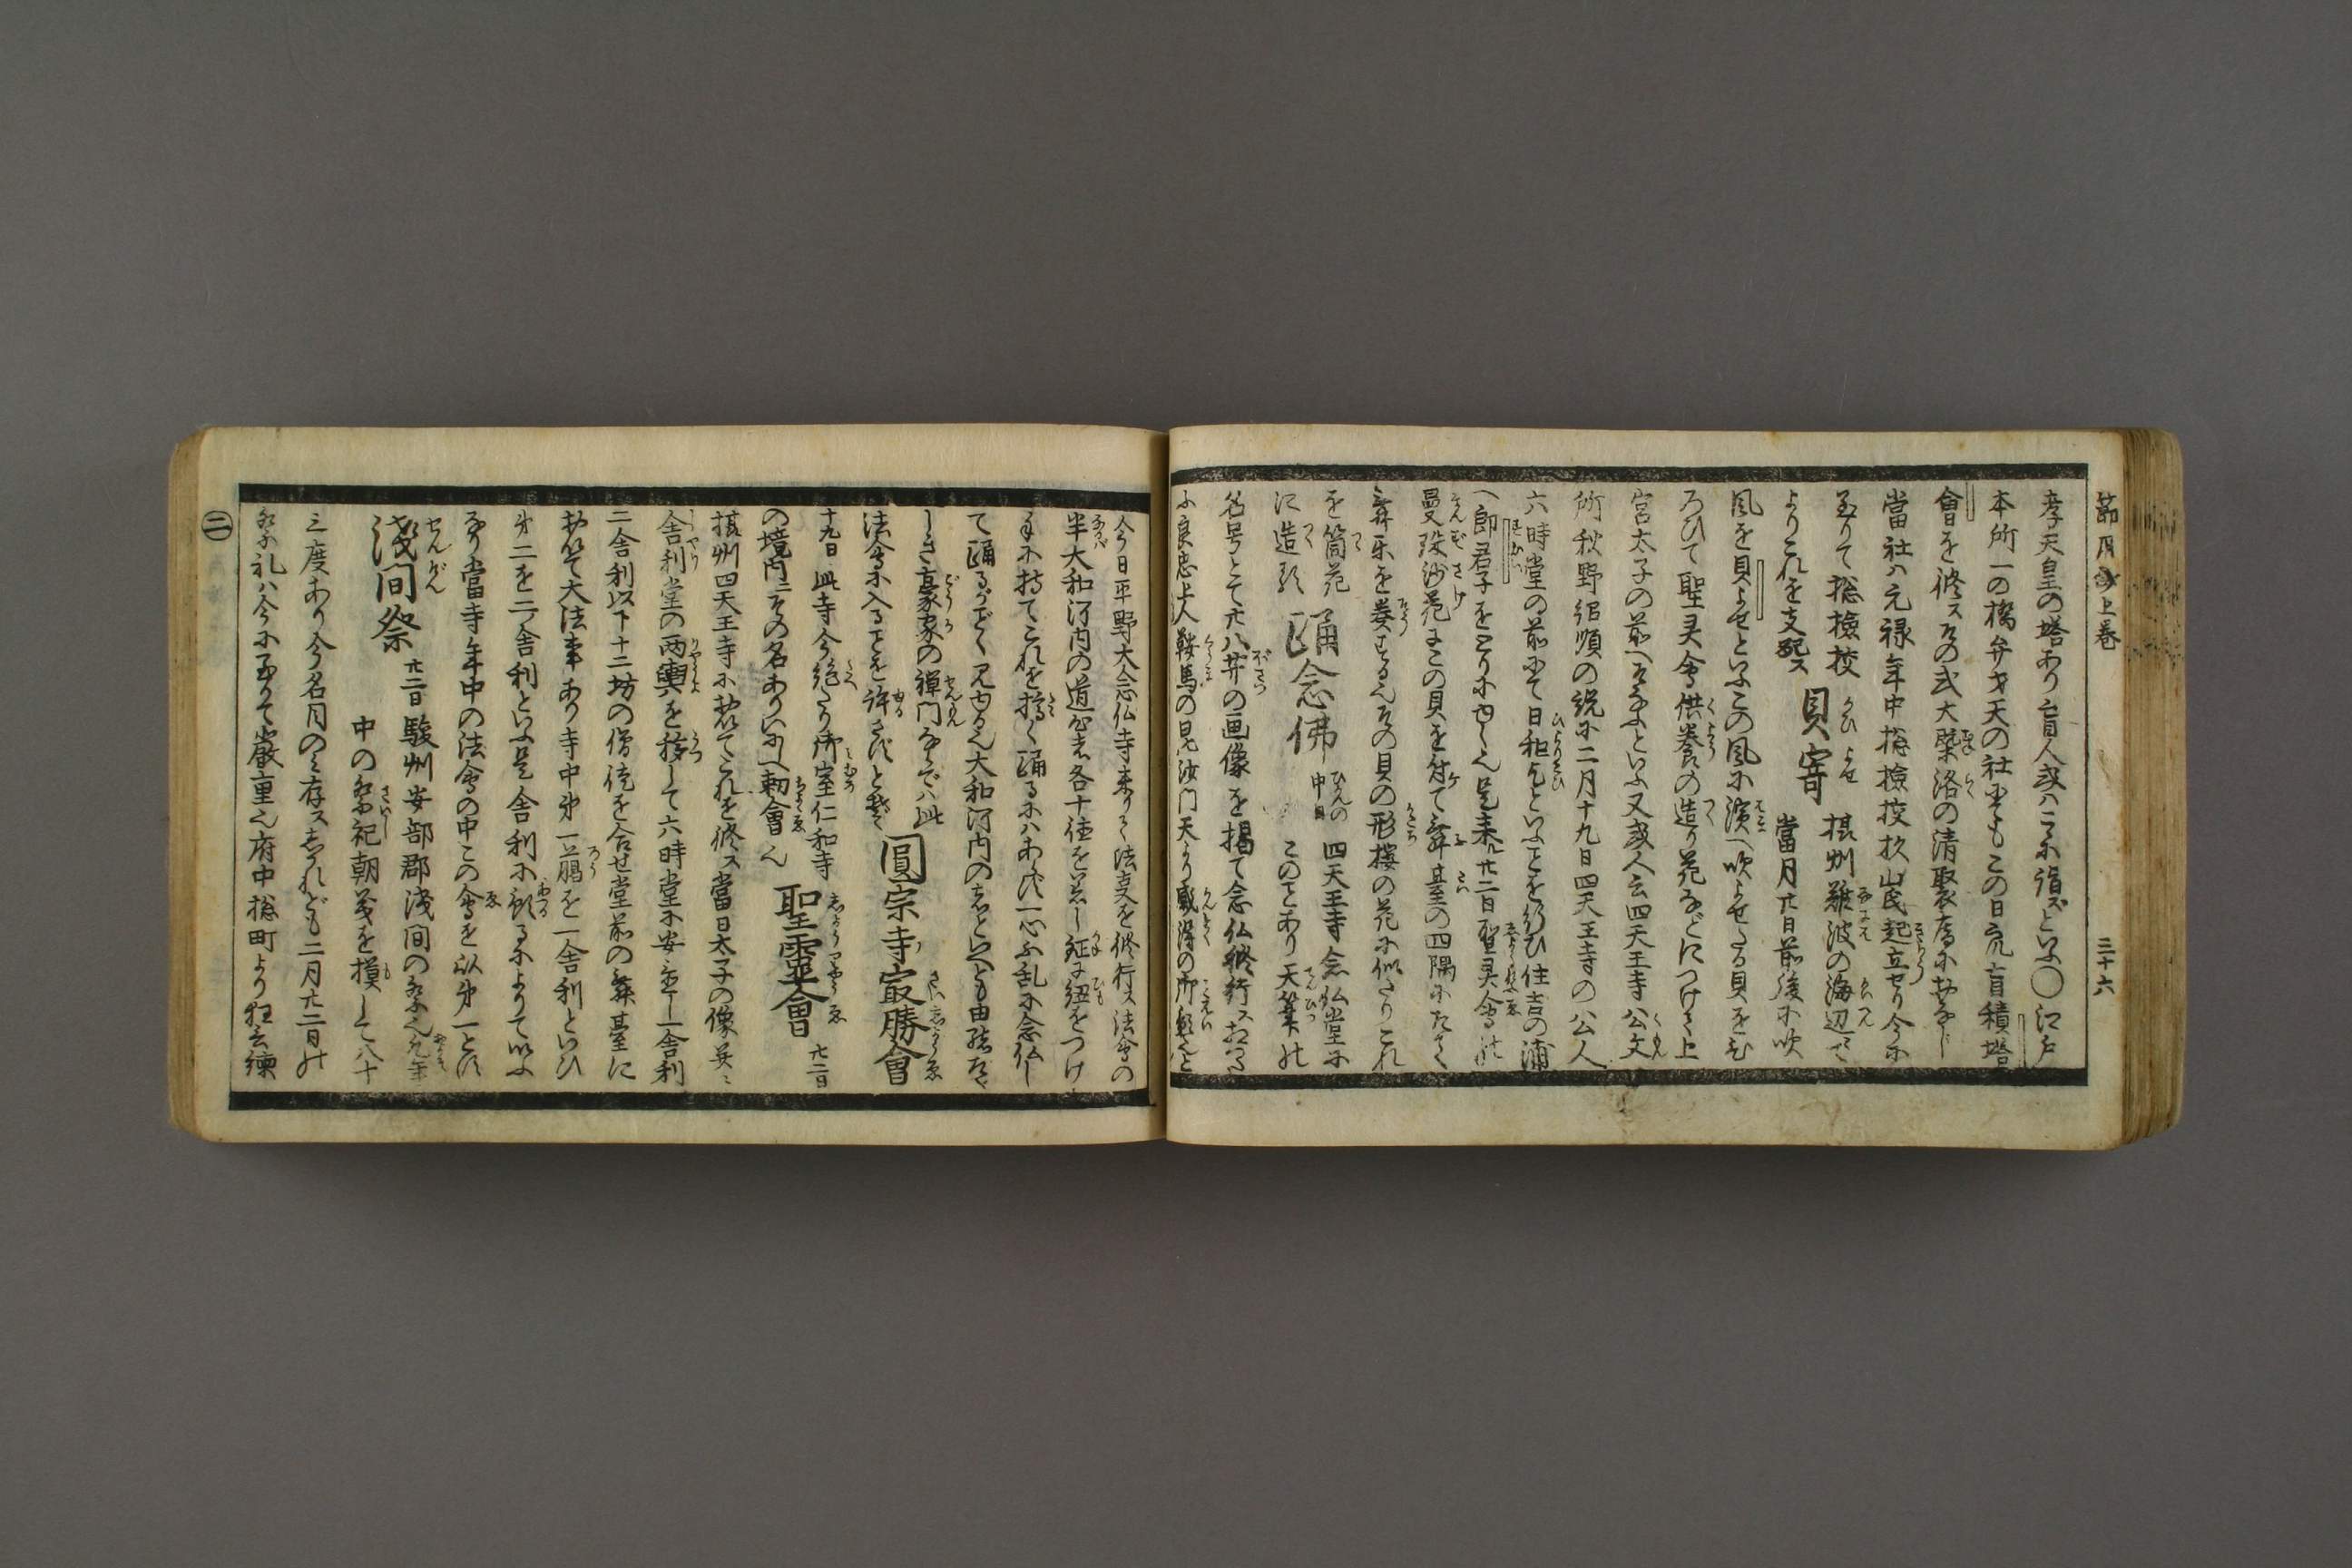 節用 上巻 三十六
孝天皇の塔あり盲人或ハこゝに詣ズといふ〇江戸
本所一の橋弁才天の社にてもこの日亦盲積塔
會を修ス其の式大槩洛の清聚庵におなじ
當社ハ元禄年中捴檢挍杦山氏起立せり今に
至りて捴檢挍
よりこれを支配ス
貝寄 摂州難波の海辺にて
當月廿日前後に吹
風を貝よせといふこの風に濱へ吹よせたる貝をひ
ろひて聖灵会供養の造り花などにつけて上
宮太子の前へそなふといふ又或人云四天王寺公文
所秋野紹順の説に二月十九日四天王寺の公人
六時堂の前にて日和乞といふことを行ひ住吉の浦
へ郎君子をとりにやる也是来廿二日聖灵會の
曼殊沙花にこの貝を付て舞臺の四隅にたて
舞樂を奏する也その貝の形桜の花に似たりこれ
を筒花
に造る
踊念佛 中日 四天王寺念仏堂に
このことあり天筆の
名号とて廿八井の画像を掲て念仏修行ス
に良忠上人鞍馬の毘沙門天より感得の御影也と
今日平野大念仏寺来りて法夏を修行ス法会の
半大和河内の道 各十徳を着し鉦に紐をつけ
手に持てこれを撞て踊るにハあらず一心不乱に念仏し
て踊るがごとく見ゆる也大和河内の者といへども由緒な
しき豪家の禅門などでハ此
法會に入ることを許さずと
圓宗寺㝡勝會
十九日 此寺今絶たり御室仁和寺
の境内にその名ありいにしへ勅會也
聖靈會 廿二日
摂州四天王寺に於てこれを修ス當日太子の像并に
舎利堂の両輿を移して六時堂に安置し一舎利
二舎利以下十二坊の僧徒を合せ堂前の舞臺に
於て大法事あり寺中第一䐁を一舎利といひ
第二を二ノ舎利といふ是舎利に預るによりていふ
なり當寺年中の法會の中この會を以第一とす
浅間祭 廿二日 駿州安部郡浅間の祭也
中の祭祀朝
三度あり今名目のミ存スしかれども二月廿二日の
祭礼ハ今に至りて嚴重也府中捴町より狂言練
二